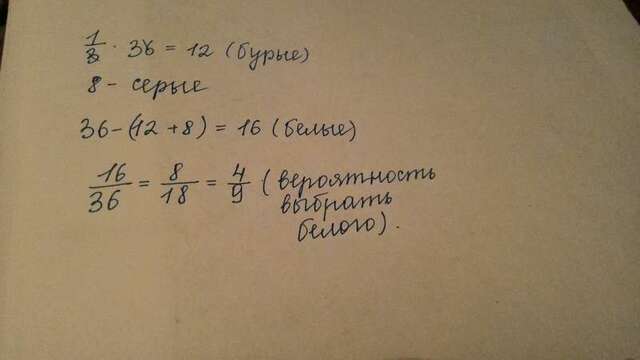 1/3 · 36 = 12 (бурые)
8 - серые
36-(12+8) = 16 (белые)
16/36 = 8/18 = 4/9 (вероятность
выбрать
белого).